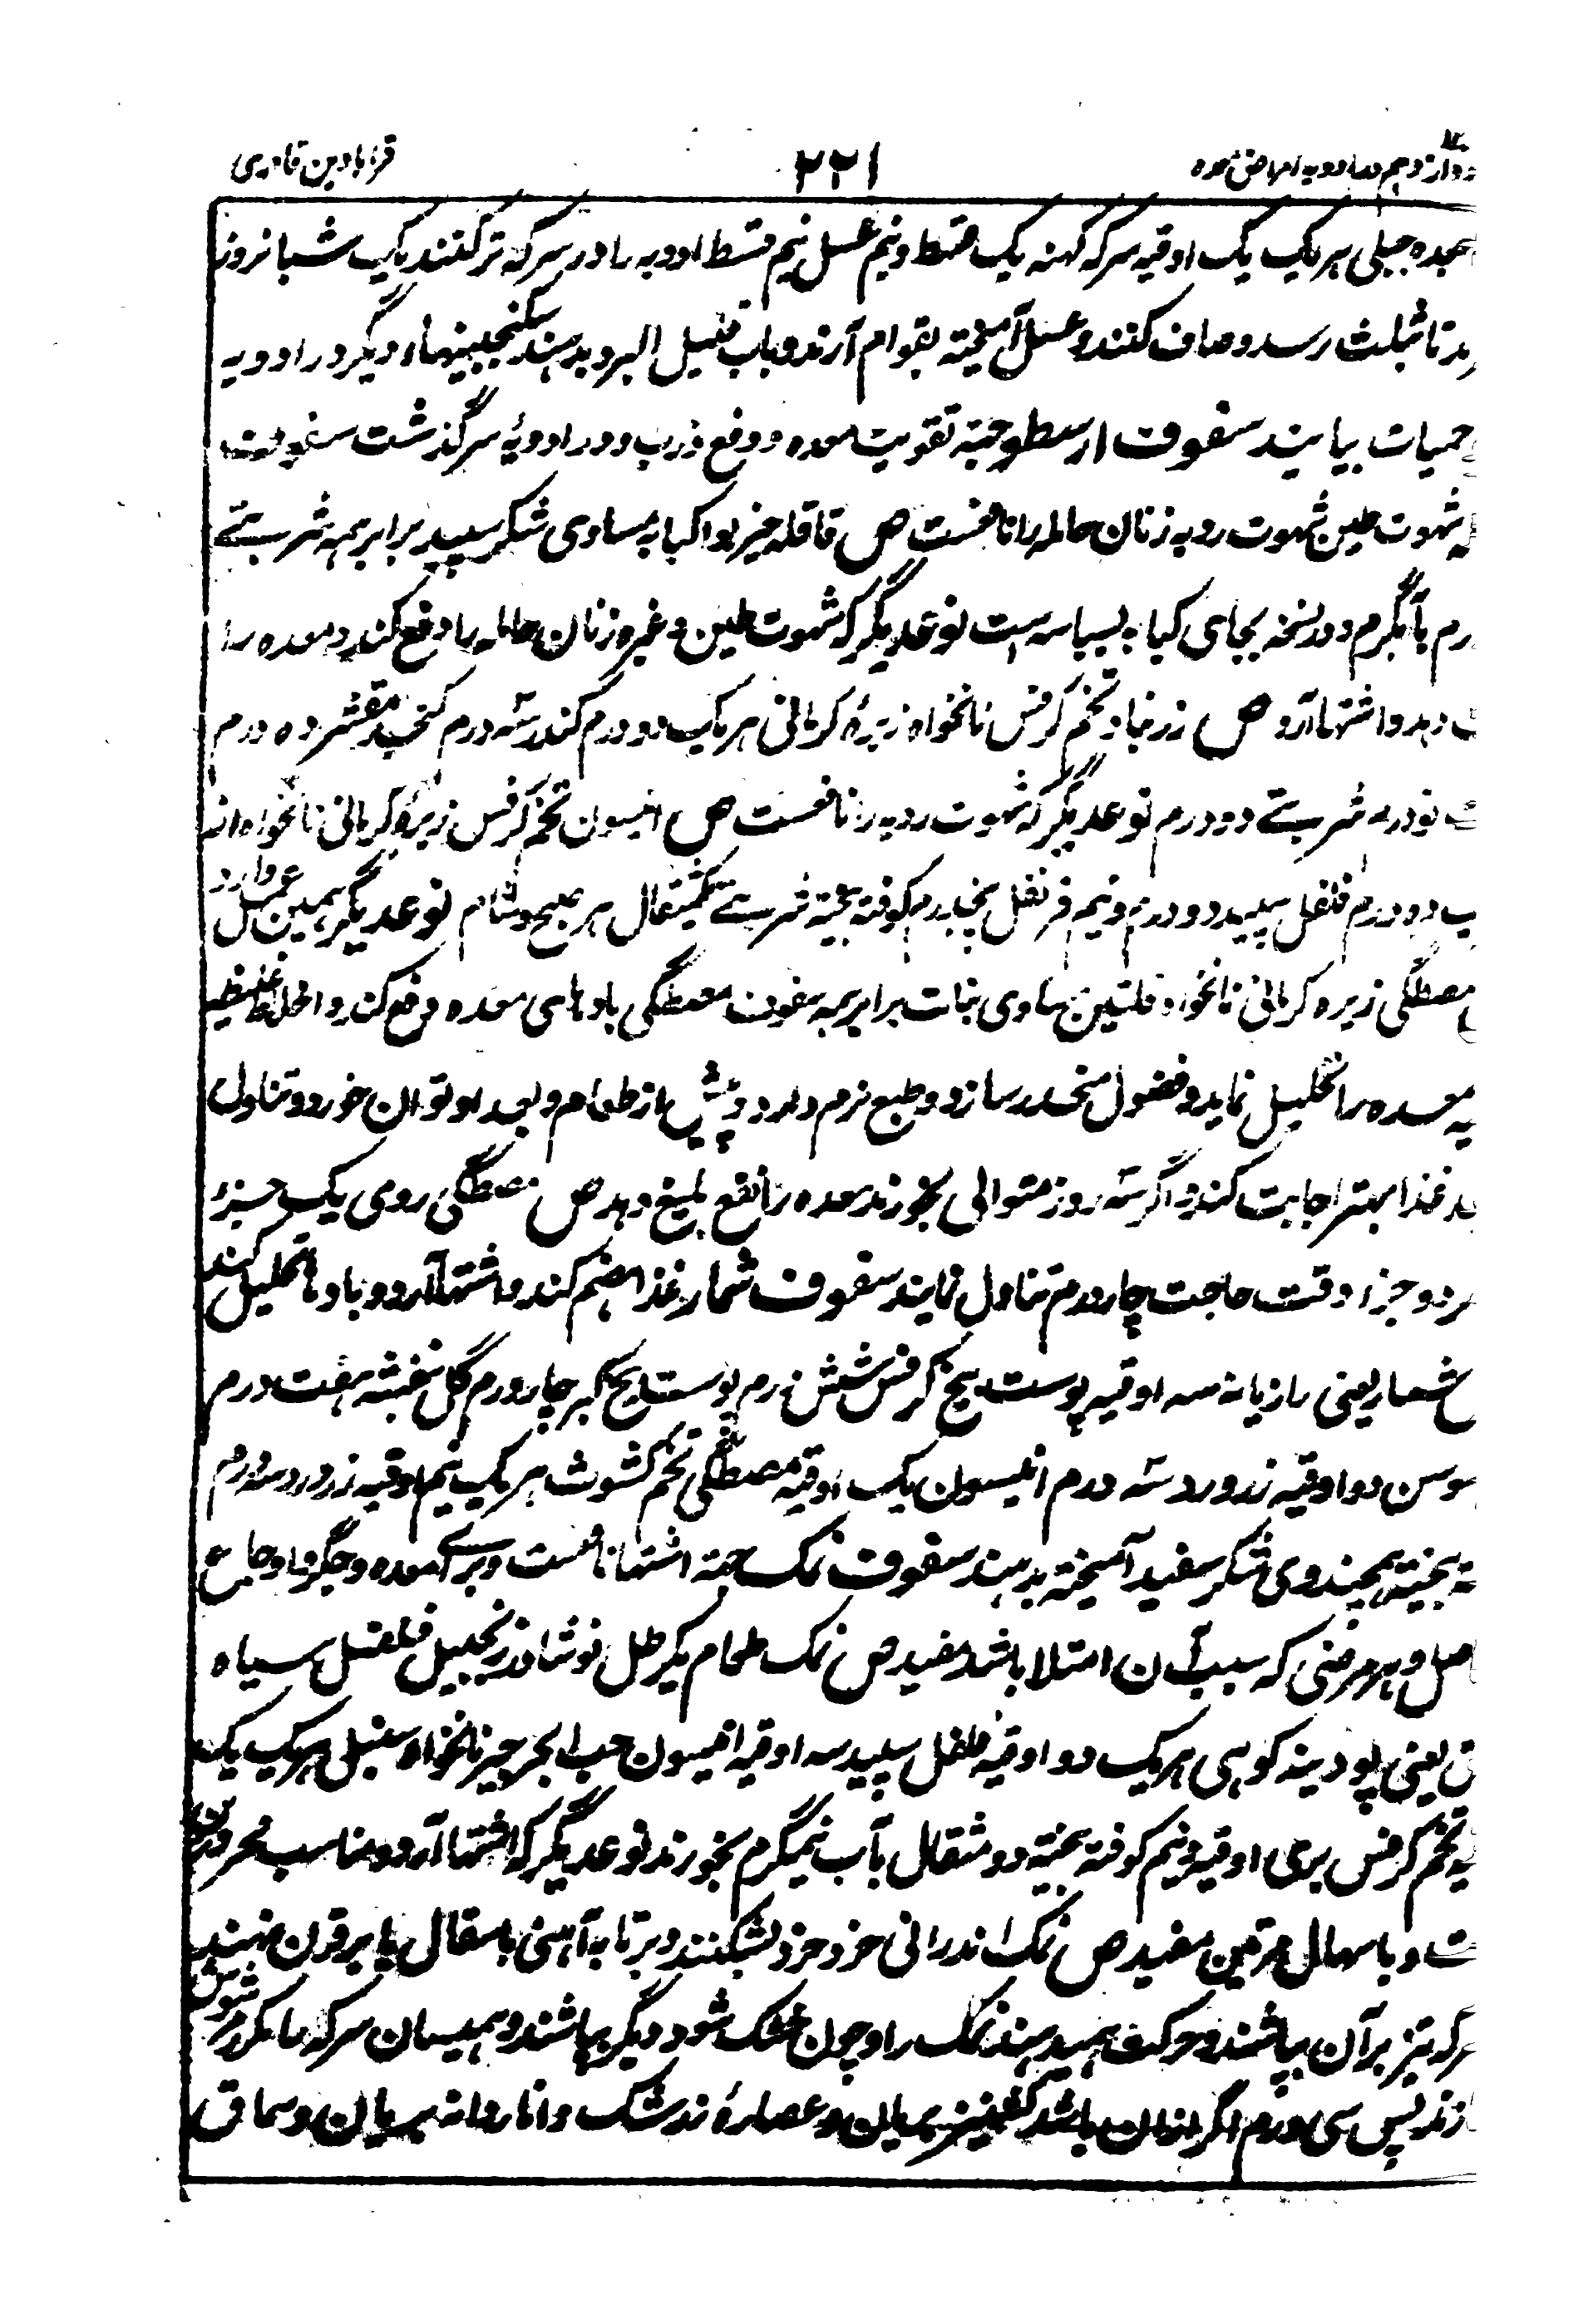 دوازدهم در ادویه امراض معده ۲۲۱ قرابادین قادری
جعده جبلی هر یک یک اوقیه سرکه کهنه یک قسط و نیم عسل نیم قسط ادویه را در سرکه تر کنند یک شبانروز
تا بثلث رسد و صاف کنند و عسل آمیخته بقوام آرند و باب قلیل البرد بدهند سکنجبینهاء دیگر در ادویه
حمیات بیایند سفوف ارسطو جهته تقویت معده و دفع ذرب و در ادویهٔ سر گذشت سفوف
شهوت طین شهوت ردیه زنان حامله را نافعست ص قاقله خیربوا کبابه مساوی شکر سپید برابر همه شربتے
بآبگرم و در نسخه بجای کبابه بسباسه است نوعدیگر که شهوت طین و غیره زنان حامله را دفع کند و معده را
دهد و اشتها آرد ص زرنباد تخم کرفس نانخواه زیرهٔ کرمانی هر یک دو درم کندر سه درم کنجد مقشر ده درم
شربتے دو درم نوعدیگر که شهوت ردیه را نافعست ص انیسون تخم کرفس زیرهٔ کرمانی نانخواه از
دو درم فلفل سپید دو درم و نیم قرنفل پنجدرم کوفته بیخته شربتے یکمثقال هر صبح و شام نوعدیگر همین عمل دارد
مصطگی زیره کرمانی نانخواه مساوی نبات برابر همه سفوف مصطگی بادهای معده دفع کند و اخلاط غلیظه
معده را تحلیل نماید و فضول منحدر سازد و طبع نرم دارد و پیش از طعام و بعد او توان خورد و تناول
غذا بهتر اجابت کند و اگر سه روز متوالی بخورند معده را نفع بلیغ دهد ص مصطگی رومی یک جزء
دو جزء وقت حاجت چار درم تناول نمایند سفوف شمار غذا هضم کند و اشتها آرد و بادها تحلیل کند
شمار یعنی رازیانه سه اوقیه پوست بیخ کرفس شش درم پوست بیخ کبر چار درم گل بنفشه هفت درم
سوسن دو اوقیه زرورد سه درم انیسون یک اوقیه مصطگی تخم کشوث هر یک نیم اوقیه زرورد سه درم
بیخته بهمچندوی شکر سفید آمیخته بدهند سفوف نمک جهته اشتها نافعست و برای معده و جگر و اوجاع
و هر مرضی که سبب آن امتلا باشد مفید ص نمک طعام یکرطل نوشادر زنجبیل فلفل سیاه
یعنی پودینه کوهی هر یک دو اوقیه فلفل سپید سه اوقیه انیسون حب الجرجیر نانخواه سنبل هر یک یک
تخم کرفس بری اوقیه و نیم کوفته بیخته دو مثقال بآب نیمگرم بخورند نوعدیگر که اشتها آرد و مناسب محرورین
و باسهال مرتین مفید ص نمک اندرانی خرد خرد بشکنند و بر تابه آهنی یا سفال یا بر قرن نهند
تیز بر آن بپاشند و حرکت همیدهند نمک را و چون خشک شود دیگر بپاشند و همیسان سرکه را مکرر
پس سی درم اگر از آن باشد کشنیز بریان و عصارهٔ زرشک و انار دانه بریان و سماق